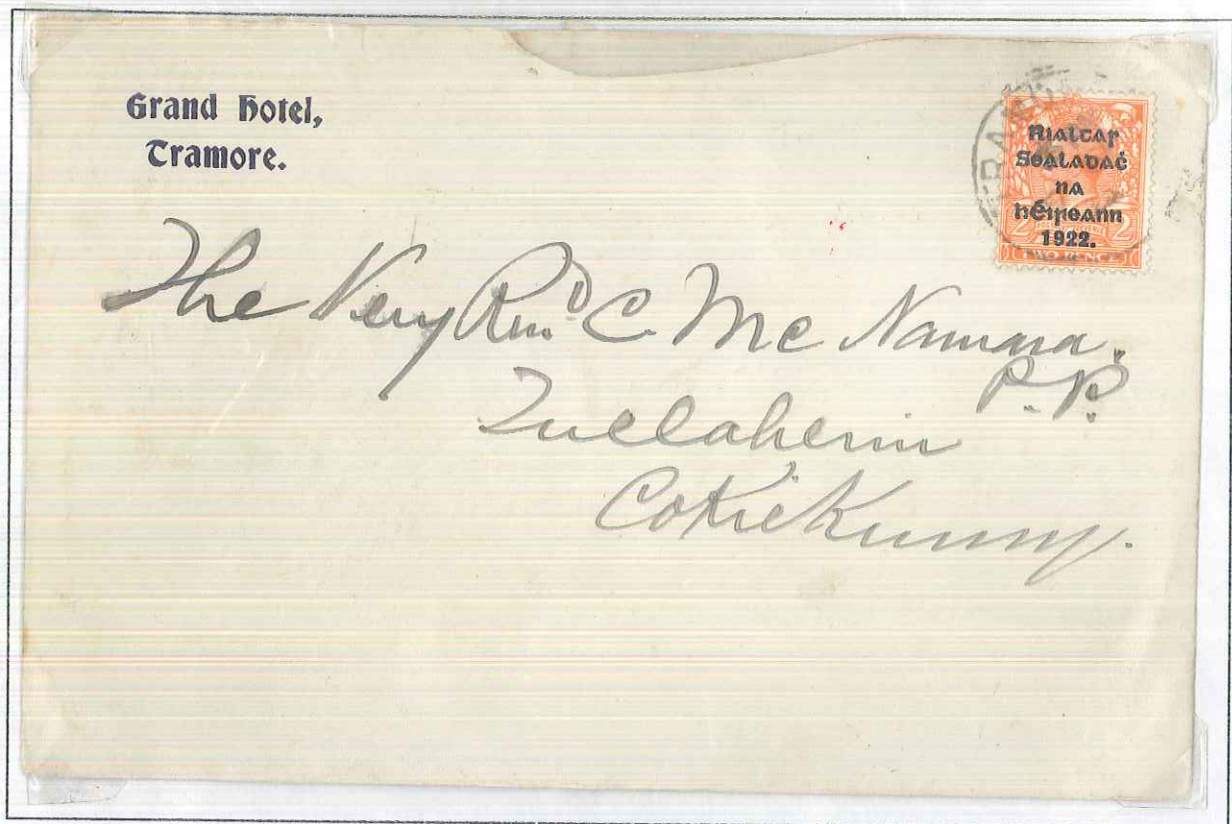 Grand Hotel,
Tramore.
Rialtar
Sealadaċ
na
hÉireann
1922.
2 2
TWO PENCE
The Very Revd C. Mc Namara.
P.P.
Tullaherin
Co Kilkenny.